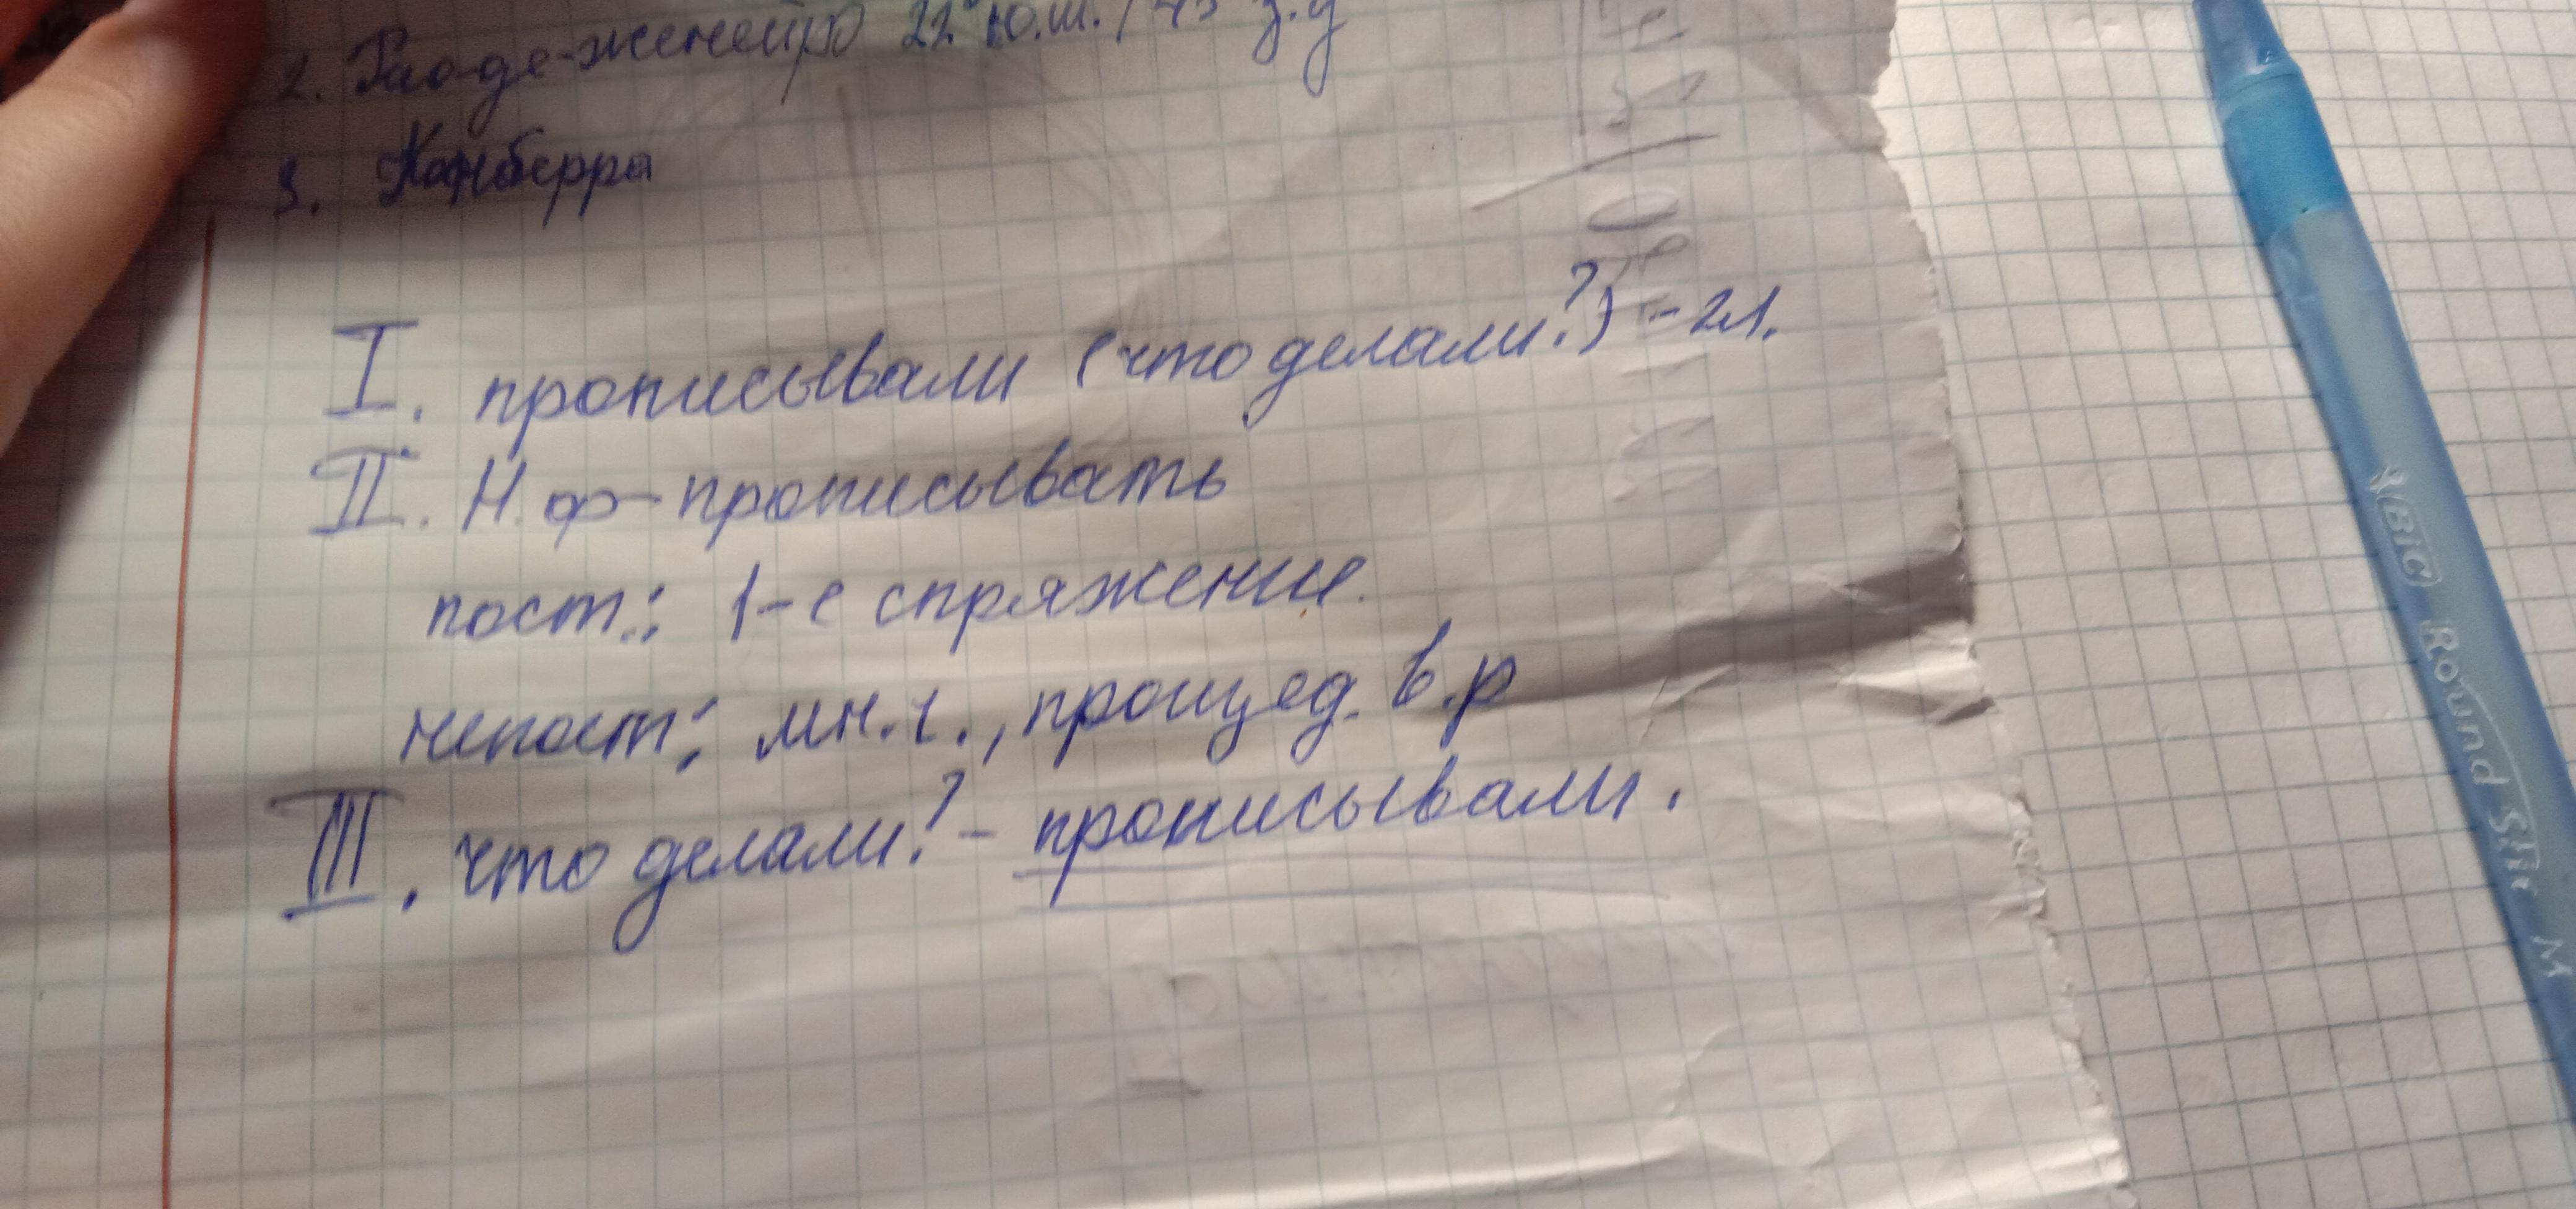 2. Рио-де-женейро 22° ю.ш. / 43 з.д
3. Канберра
I. прописывали (что делали?) - гл.
II. Н.ф - прописывать
пост.: 1-е спряжение.
непост: мн.ч., прошед. в.р
III. что делали? - прописывали.
BIC Round Stic M